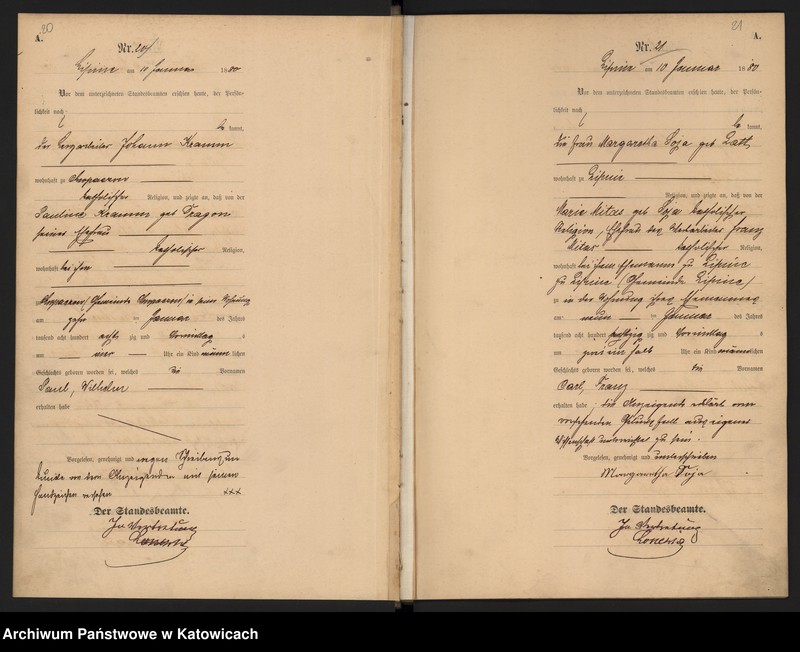 20
A.
Nr. 20
Lipine am 10 Januar 1880
Vor dem unterzeichneten Standesbeamten erschien heute, der Persön-
lichkeit nach
be kannt,
der Bergarbeiter Johann Kramm
wohnhaft zu
katholischer Religion, und zeigte an, daß von der
Pauline Kramm geb Dragon
seiner Ehefrau
katholischer Religion,
wohnhaft bei ihm
in seiner Wohnung
am Januar des Jahres
tausend acht hundert acht zig und Vormittag s
um vier Uhr ein Kind männ lichen
Geschlechts geboren worden sei, welches die Vornamen
Paul, Wilhelm
erhalten habe
Vorgelesen, genehmigt und wegen Schreibensun
kunde von dem Anzeigenden mit seinem
Handzeichen versehen xxx
Der Standesbeamte.
In Vertretung
21
A.
Nr. 21
Lipine am 10 Januar 1880
Vor dem unterzeichneten Standesbeamten erschien heute, der Persön-
lichkeit nach
be kannt,
die Frau Margaretha Soja geb
wohnhaft zu Lipine
Religion, und zeigte an, daß von der
Marie Mitas geb Soja katholischer
Religion, Ehefrau des Franz
Mitas katholischer Religion,
wohnhaft bei ihrem Ehemanne zu Lipine
zu Lipine (Gemeinde Lipine)
in der Wohnung ihres Ehemannes
am neun Januar des Jahres
tausend acht hundert achtzig und Vormittag s
um Uhr ein Kind männlichen
Geschlechts geboren worden sei, welches die Vornamen
Carl, Franz
erhalten habe, die Anzeigende erklärt von
vorstehenden Geburtsfall aus eigener
Wissenschaft unterrichtet zu sein.
Vorgelesen, genehmigt und unterschrieben
Margaretha Soja
Der Standesbeamte.
In Vertretung
Archiwum Państwowe w Katowicach